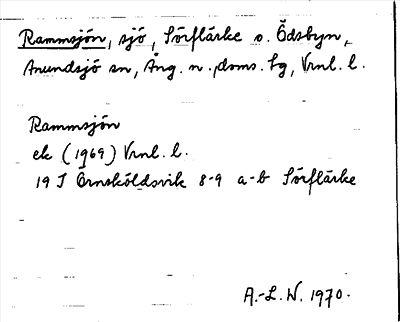 Rammsjön, sjö, Sörflärke o. Ödsbyn,
Anundsjö sn, Ång. n., doms. lg, Vrnl. l.
Rammsjön
ek (1969) Vrnl. l.
19 J Örnsköldsvik 8-9 a-b Sörflärke
A.-L. W. 1970.